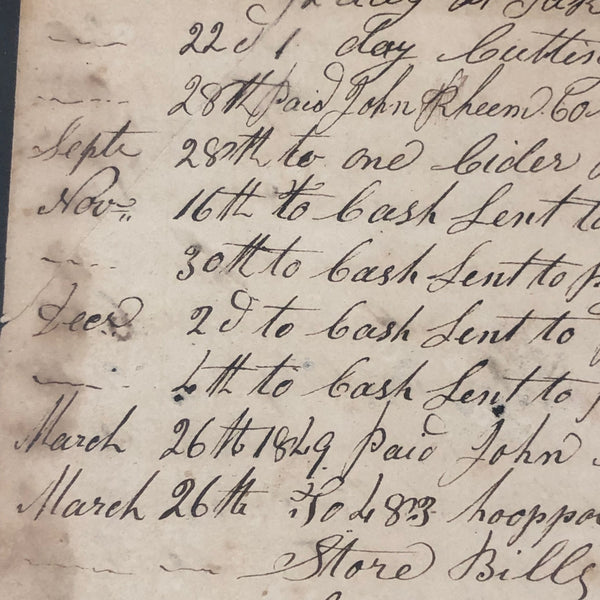 day
22d 1 day Cutti
28th Paid John Rheem Ca
Septr 28th to one Cider
Novr 16th to Cash Lent to
30th to Cash Lent to
Decr 2d to Cash Lent to
4th to Cash Lent to
March 26th 1849 Paid John
March 26th To 483 hooppo
Store Bills